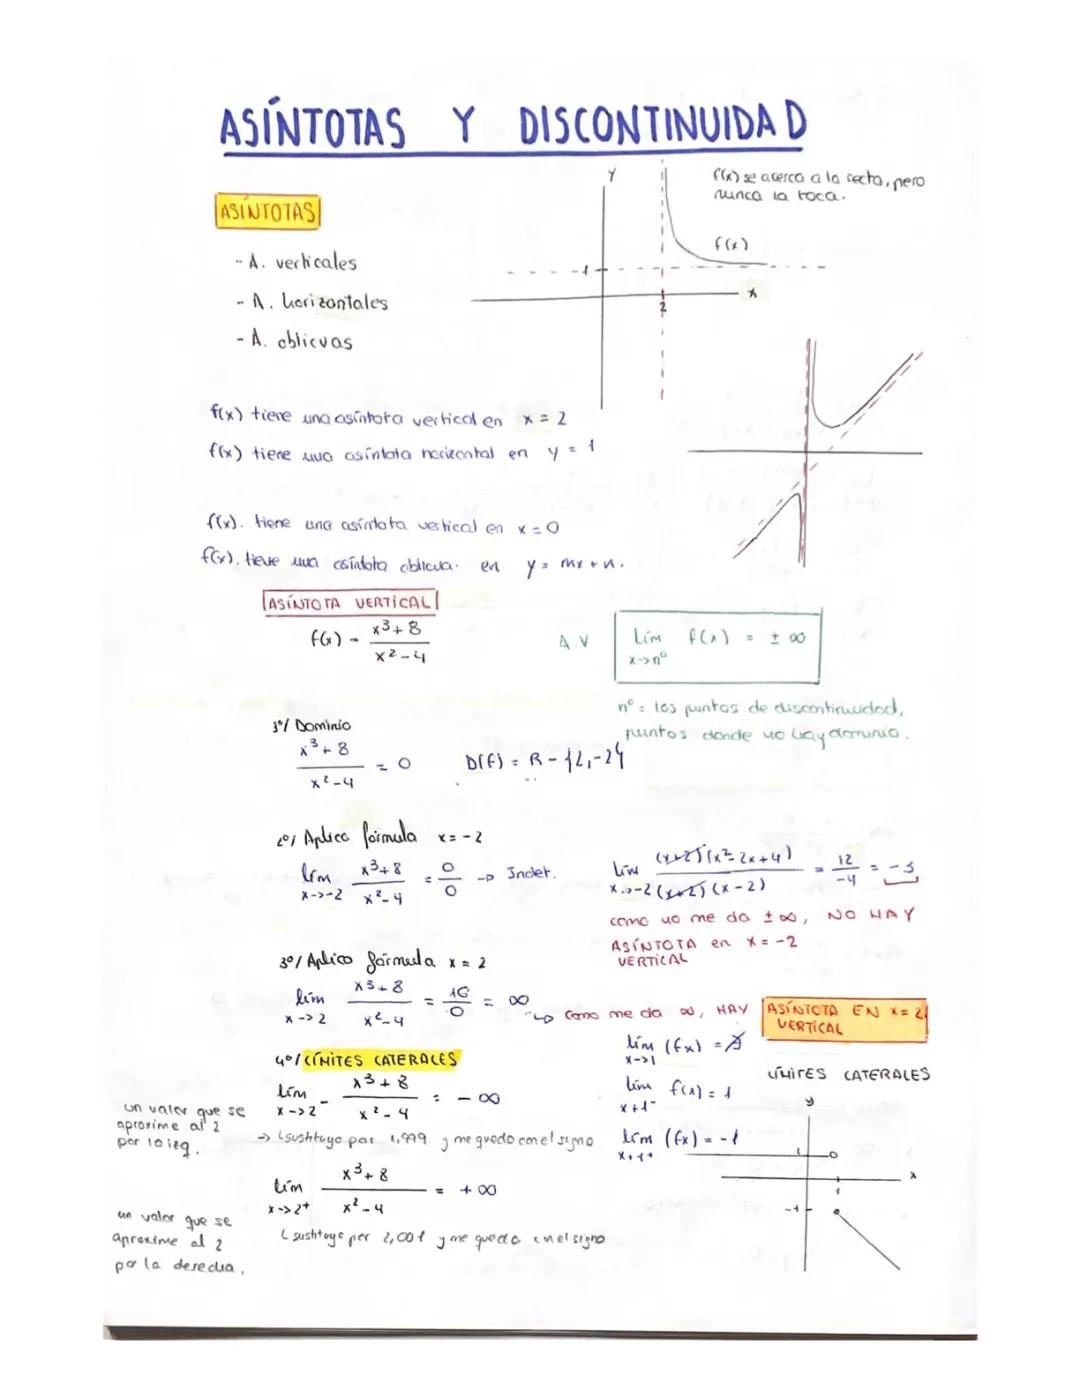 ASÍNTOTAS Y DISCONTINUIDAD
f(x) se acerca a la recta, pero
nunca la toca.
ASÍNTOTAS
- A. verticales
- A. horizontales
- A. oblicuas
y
f(x)
1
x
2
f(x) tiene una asíntota vertical en x = 2
f(x) tiene una asíntota horizontal en y = 1
f(x). tiene una asíntota vertical en x = 0
f(x). tiene una asíntota oblicua. en y = mx + n.
ASÍNTOTA VERTICAL
f(x) = x³ + 8 / x² - 4
A.V lim x->nº f(x) = ± ∞
nº = los puntos de discontinuidad,
puntos donde no hay dominio.
1º/ Dominio
x³ + 8 / x² - 4 = 0 D(f) = R - {2, -2}
2º/ Aplico fórmula x = -2
lim x->-2 x³+8 / x²-4 = 0/0 -> Indet.
lim x->-2 (x+2)(x²-2x+4) / (x+2)(x-2) = 12/-4 = -3
como no me da ± ∞, NO HAY
ASÍNTOTA en x = -2
VERTICAL
3º/ Aplico fórmula x = 2
lim x->2 x³+8 / x²-4 = 16/0 = ∞
-> Como me da ∞, HAY ASÍNTOTA EN x = 2
VERTICAL
4º/ LÍMITES LATERALES
lim x->2⁻ x³+8 / x²-4 = - ∞
un valor que se
aproxime al 2
por la izq.
-> (sustituyo por 1,999 y me quedo con el signo
lim x->2⁺ x³+8 / x²-4 = + ∞
un valor que se
aproxime al 2
por la derecha.
(sustituyo por 2,001 y me quedo en el signo
lim x->1 (fx) = ∄
lim x->1⁻ f(x) = 1
lim x->1⁺ (fx) = -1
LÍMITES LATERALES
y
1
x
1
-1